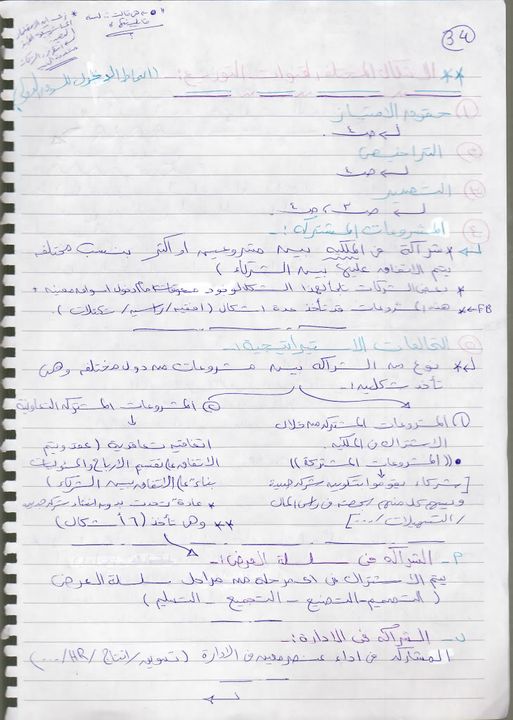 34
** الاشكال المختلفه لقنوات التوزيع :- (انماط الدخول للسوق الدولي)
① حقوق الامتياز
↳ ص٤ .
② التراخيص
↳ ص٤
③ التصدير
↳ ص٣ ، ص٤ .
④ المشروعات المشتركه :-
↳ * شراكة فى الملكيه بين مشروعين او اكثر بنسب مختلفه
يتم الاتفاق عليها بين الشركاء )
* بعض الشركات تلجأ لهذا الشكل لوجود معوقات امام دخول اسواق معينه .
FB ← * هذه المشروعات قد تأخذ عدة اشكال (افقيه / راسيه / تكتلات ) .
⑤ التحالفات الاستراتيجية :-
↳ * نوع من الشراكه بين مشروعات من دول مختلفه وهى
تأخذ شكلين :-
① المشروعات المشتركه من خلال
الاشتراك فى الملكيه .
• (( المشروعات المشتركة ))
[ شركاء يقوموا بتكوين شركه جديدة
ويسهم كل منهم بحصة فى راس المال
/ التسهيلات /.... ]
② المشروعات المشتركه التعاونية
اتفاقيه تعاقدية (عقد ويتم
الاتفاق على تقسيم الارباح والمسئوليات
بناءً على الاتفاق بين الشركاء )
* عادة تحدث بدون انشاء شركه جديده
** وهى تأخذ (٦ أشكال )
٢- الشراكه فى سلسلة العرض :-
يتم الاشتراك فى اى مرحله من مراحل سلسلة العرض
( التصميم - التصنيع - التجميع - التسليم )
ب- الشراكه فى الادارة :-
المشاركه فى اداء عنصر معين فى الادارة (تسويق / انتاج / HR /....)